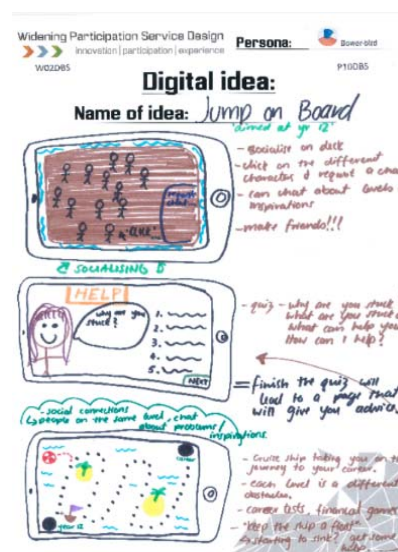 Widening Participation Service Design
innovation | participation | experience
Persona:
Bowerbird
W02DBS
P10DBS
Digital idea:
Name of idea: Jump on Board
"aimed at yr 12"
- socialise on deck
- click on the different
character & request a cha
- can chat about levels
inspirations
- make friends!!!
request
chat
SOCIALISING
HELP!
why are you
stuck?
1.
2.
3.
4.
5.
NEXT
- quiz - why are you stuck
what are you stuck
what can help you
How can I help?
= finish the quiz will
lead to a page that
will give you advice.
- social connections
people on the same level, chat
about problems/
inspirations.
year 12
- Cruise ship taking you on th
journey to your career.
- each level is a different
obstacle.
- career tests, financial games
- "keep the ship a float"
starting to sink? get some